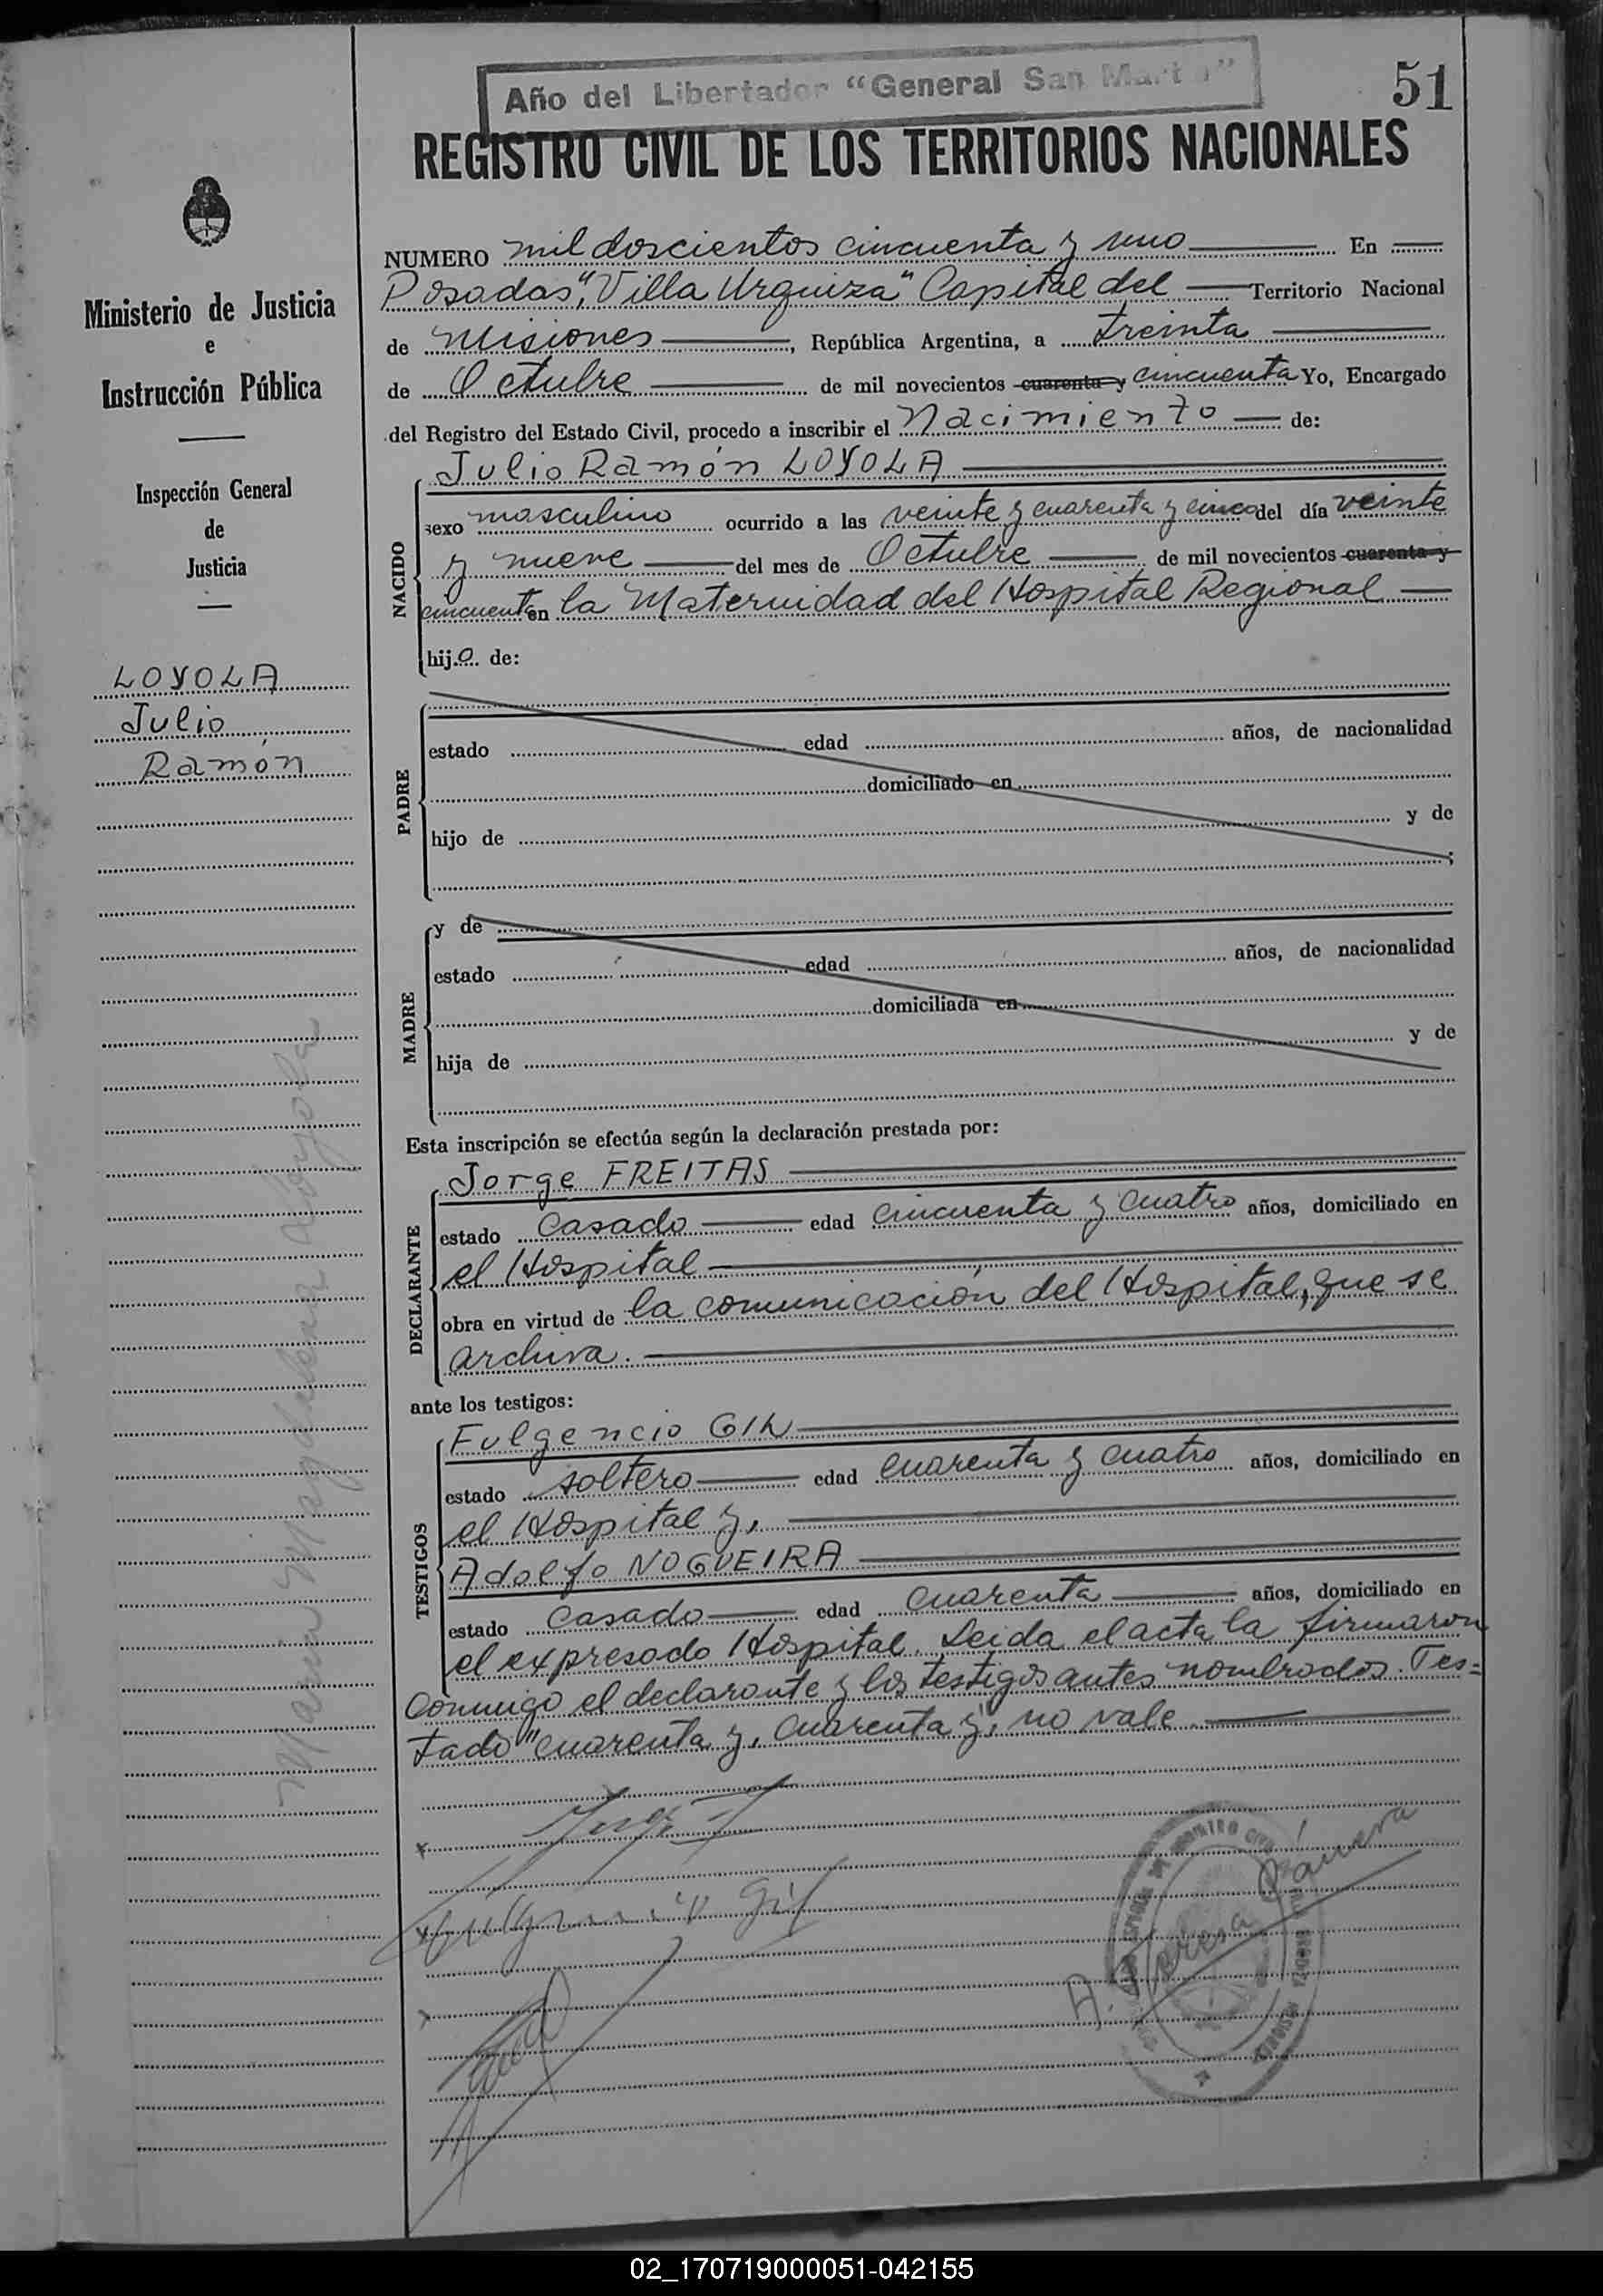 Año del Libertador “General San Martín”
51
REGISTRO CIVIL DE LOS TERRITORIOS NACIONALES
Ministerio de Justicia
e
Instrucción Pública
Inspección General
de
Justicia
LOYOLA
Julio
Ramón
NUMERO mil doscientos cincuenta y uno En
Posadas, "Villa Urquiza" Capital del Territorio Nacional
de Misiones, República Argentina, a treinta
de Octubre de mil novecientos cuarenta y cincuenta Yo, Encargado
del Registro del Estado Civil, procedo a inscribir el Nacimiento de:
NACIDO
Julio Ramón LOYOLA
sexo masculino ocurrido a las veinte y cuarenta y cinco del día veinte
y nueve del mes de Octubre de mil novecientos cuarenta y
cincuenta en la Maternidad del Hospital Regional
hijo de:
PADRE
estado edad años, de nacionalidad
domiciliado en
hijo de y de
;
MADRE
y de
estado edad años, de nacionalidad
domiciliada en
hija de y de
Esta inscripción se efectúa según la declaración prestada por:
DECLARANTE
Jorge FREITAS
estado casado edad cincuenta y cuatro años, domiciliado en
el Hospital
obra en virtud de la comunicación del Hospital, que se
archiva.
ante los testigos:
TESTIGOS
Fulgencio GIL
estado soltero edad cuarenta y cuatro años, domiciliado en
el Hospital y,
Adolfo NOGUEIRA
estado casado edad cuarenta años, domiciliado en
el expresado Hospital. Leida el acta la firmaron
conmigo el declarante y los testigos antes nombrados. Tes=
tado "cuarenta y, cuarenta y", no vale.
Fulgencio Gil
A. Teresa
REGISTRO CIVIL
MISIONES
02_170719000051-042155